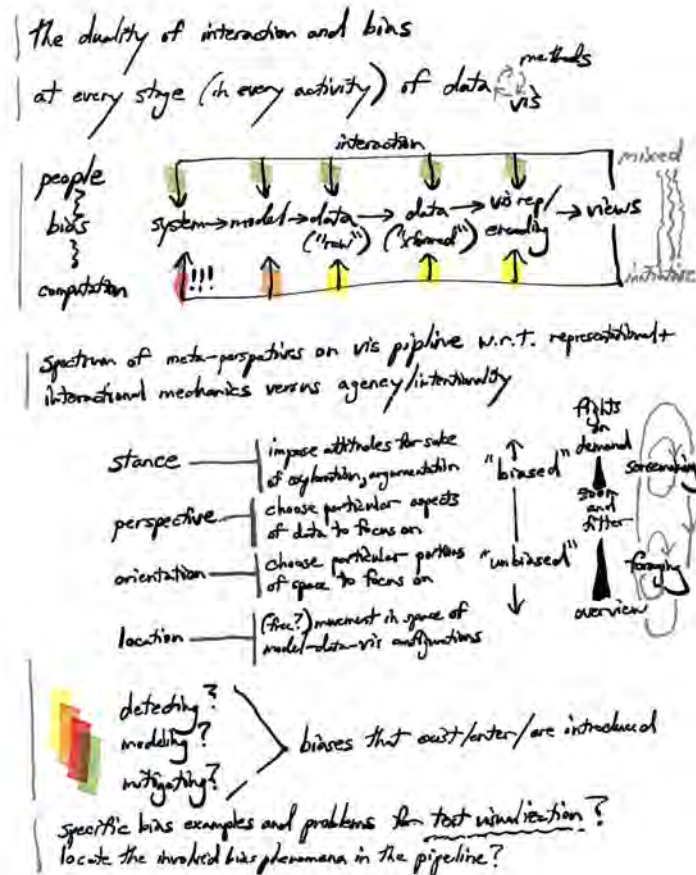 the duality of interaction and bias
methods
at every stage (in every activity) of data
vis
interaction
people
mixed
bias
system → model → data → data → vis rep/ → views
("raw") ("xformed") encoding
computation
!!!
initiative
spectrum of meta-perspatives on vis pipline w.r.t. representational +
interactional mechanics versus agency/intentionality
stance
impose attitudes for sake
of exploration, argumentation
perspective
choose particular aspects
of data to focus on
orientation
choose particular portions
of space to focus on
location
(free?) movement in space of
model-data-vis configurations
"biased"
"unbiased"
on
demand
zoom
and
filter
overview
sensemaking
foraging
detecting?
modeling?
mitigating?
biases that exist/enter/are introduced
specific bias examples and problems for text visualization?
locate the involved bias phenomena in the pipeline?